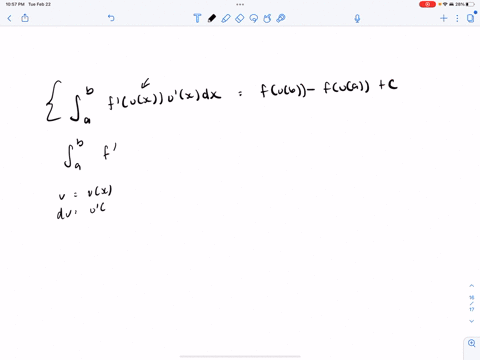 10:57 PM Tue Feb 22
26%
{ ∫_a^b f'(u(x)) u'(x) dx = f(u(b)) - f(u(a)) + C
∫_a^b f'
u = u(x)
du = u'(
16
17